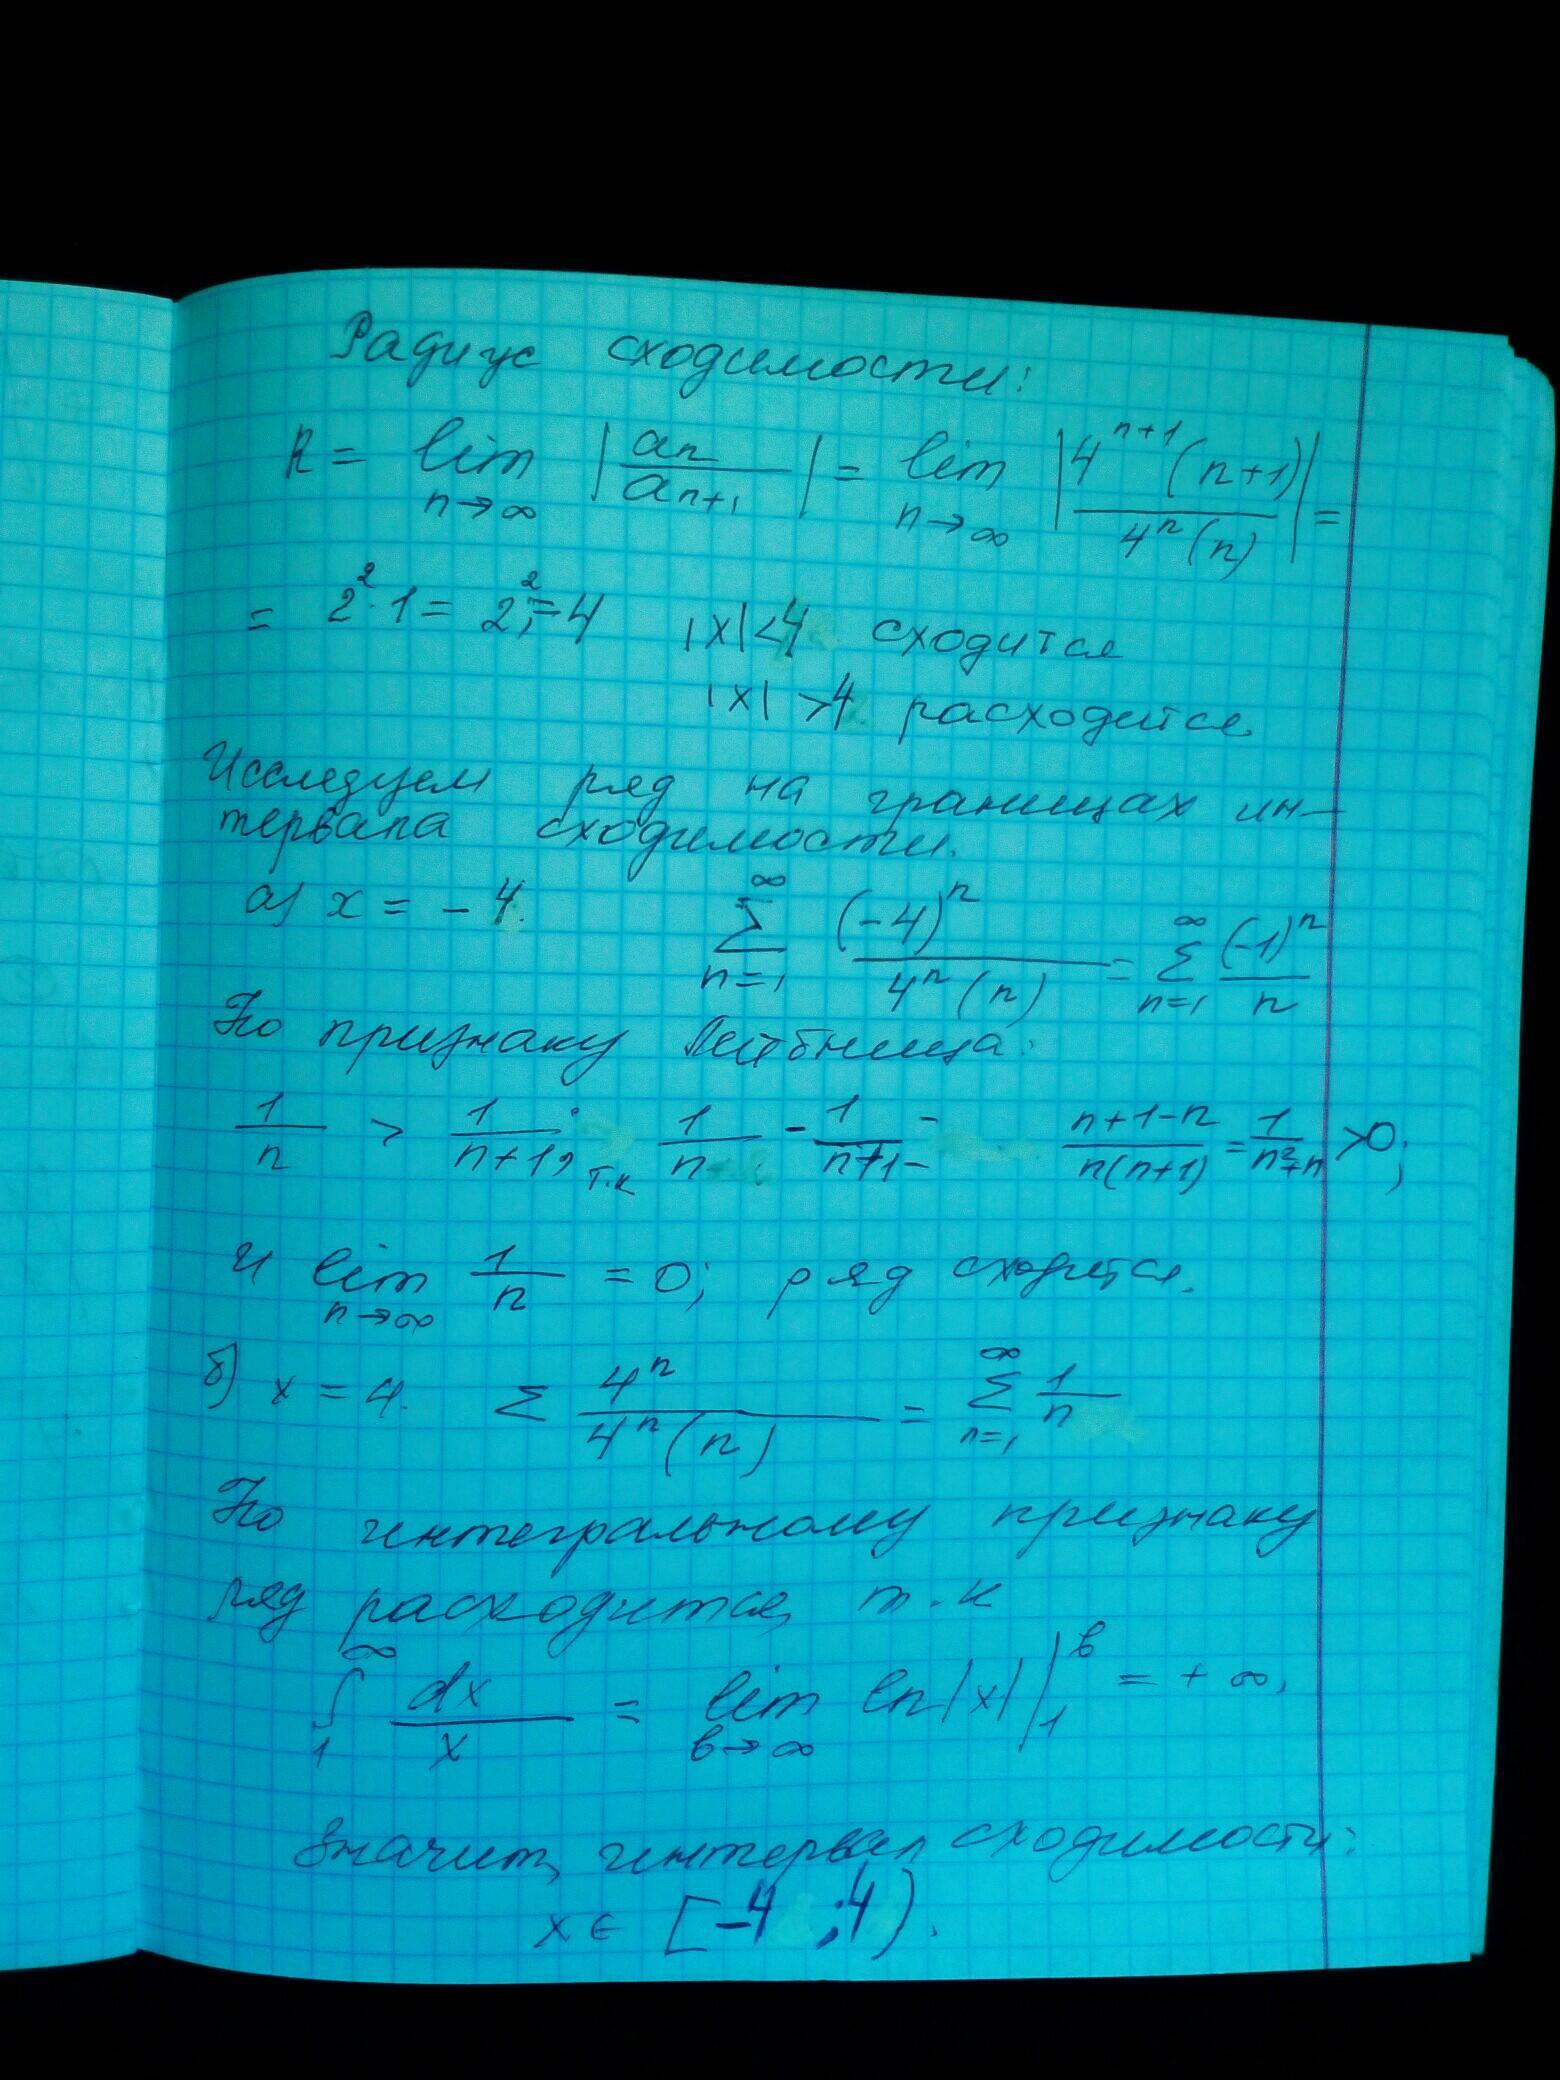 Радиус сходимости:
R = lim n→∞ |an / an+1| = lim n→∞ |4^(n+1) (n+1) / 4^n (n)| =
= 2^2 · 1 = 2^2 = 4 |x| < 4 сходится
|x| > 4 расходится
Исследуем ряд на границах ин-
тервала сходимости.
а) x = -4. ∑ n=1 ∞ (-4)^n / 4^n (n) = ∑ n=1 ∞ (-1)^n / n
По признаку Лейбница:
1/n > 1/(n+1), т.к 1/n - 1/(n+1) = (n+1-n) / n(n+1) = 1/(n^2+n) > 0;
и lim n→∞ 1/n = 0; ряд сходится.
б) x = 4. ∑ 4^n / 4^n (n) = ∑ n=1 ∞ 1/n
По интегральному признаку
ряд расходится, т.к
∫ 1 ∞ dx/x = lim в→∞ ln|x| | 1 в = +∞,
Значит, интервал сходимости:
x ∈ [-4 ; 4).